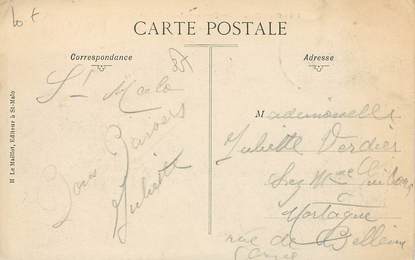 CARTE POSTALE
Correspondance
Adresse
St Malo
Bons Baisers
Juliette
Mademoiselle
Juliette Verdier
chez Mme
à
Mortagne
rue de Bellême
Orne
H Le Maillot, Editeur à St-Malo